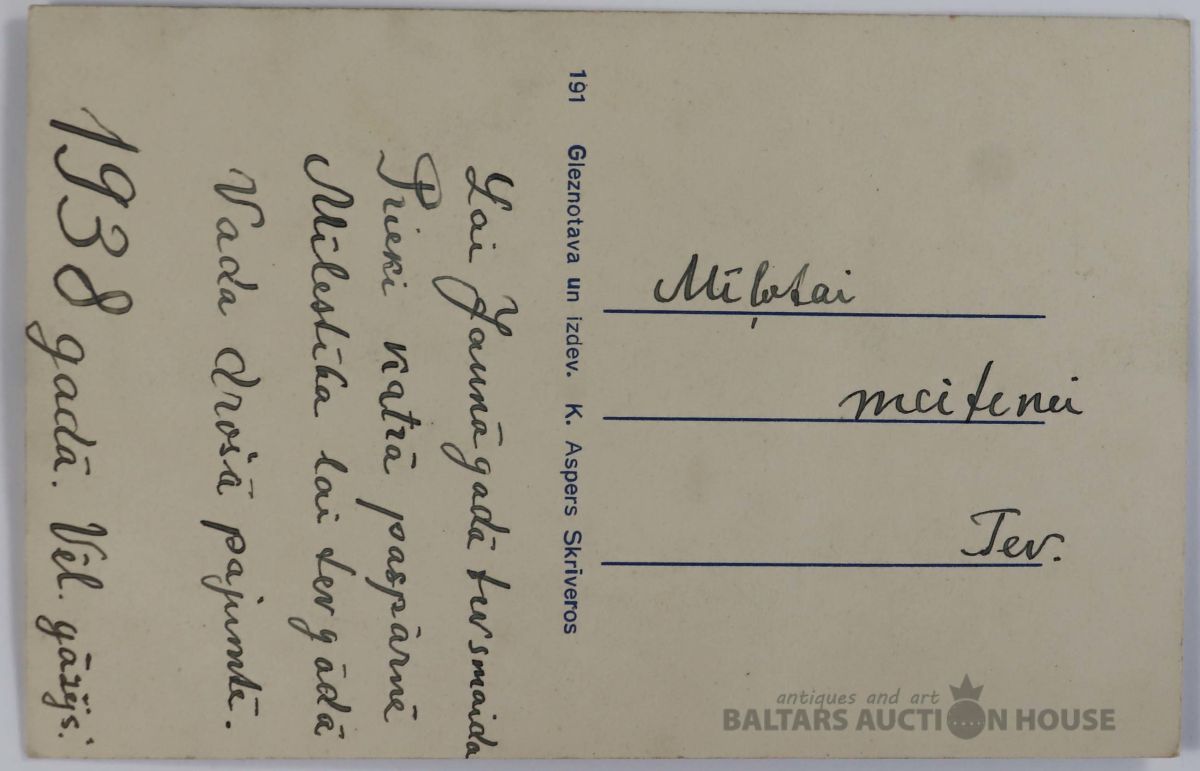 Lai Jaunāgadā tev smaida
Prieki katrā paspārnē
Mīlestība lai tev gādā
Vada drošā pajumtē.
1938 gadā. Vēl.
191 Gleznotava un izdev. K. Aspers Skrīveros
Mīļotai
meitenei
Tev.
antiques and art
BALTARS AUCTION HOUSE